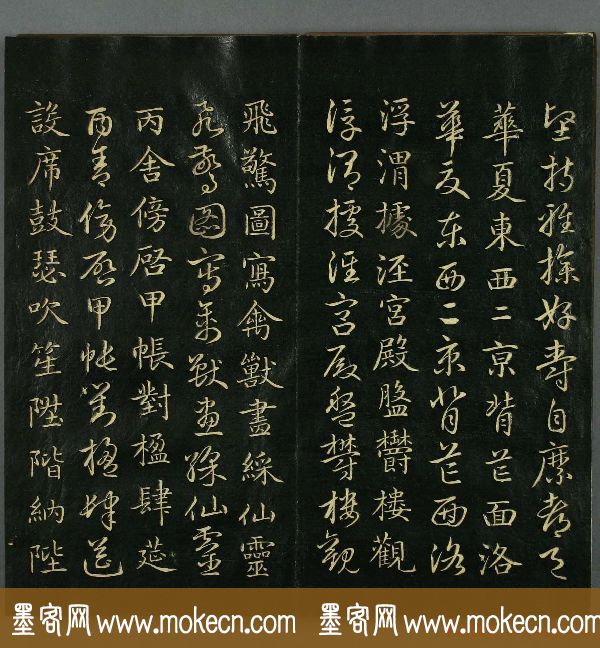 堅持雅操好爵自縻都邑
華夏東西二京背芒面洛
華夏東西二京背芒面洛
浮渭據涇宮殿盤欝樓觀
浮渭據涇宮殿盤欝樓觀
飛驚圖寫禽獸畫綵仙靈
飛驚圖寫禽獸畫綵仙靈
丙舍傍啓甲帳對楹肆莚
丙舍傍啓甲帳對楹肆莚
設席鼓瑟吹笙陞階納陛
墨客网 www.mokecn.com 墨客网 www.mokecn.com